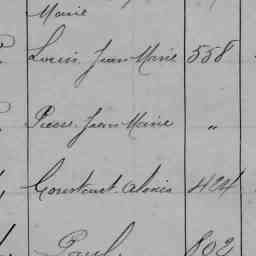 Marie
Louis Jean Marie 558
Pierre Jean Marie "
Constant Alexis 424
Paul 802